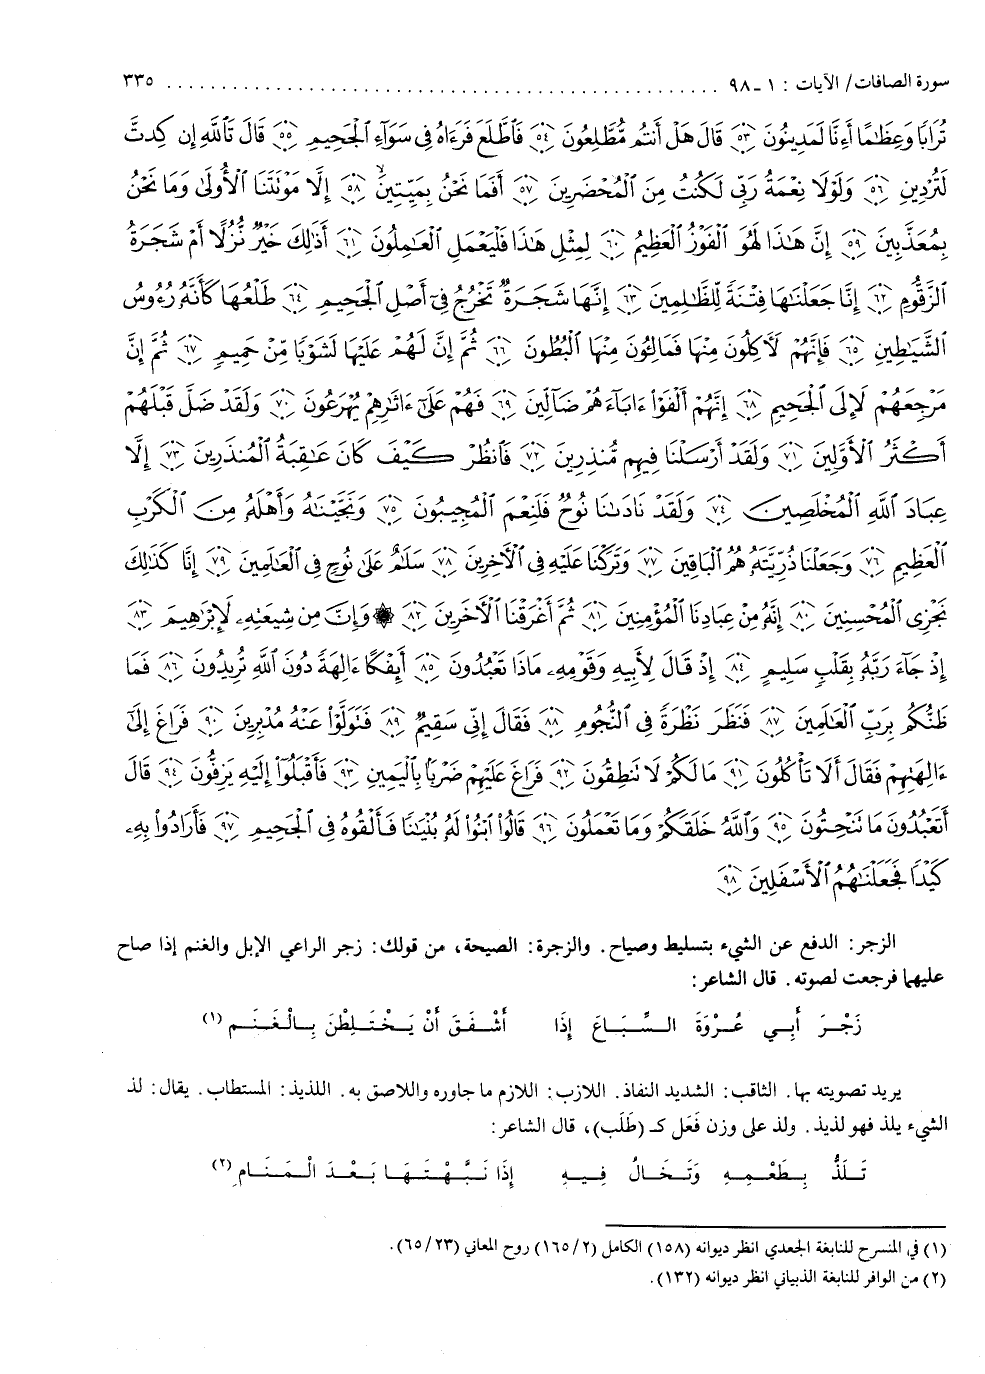 سورة الصافات/ الآيات : ١ ـ ٩٨ ................................................ ٣٣٥
تُرَابًا وَعِظَٰمًا أَءِنَّا لَمَدِينُونَ ٥٣ قَالَ هَلْ أَنتُم مُّطَّلِعُونَ ٥٤ فَٱطَّلَعَ فَرَءَاهُ فِى سَوَآءِ ٱلْجَحِيمِ ٥٥ قَالَ تَٱللَّهِ إِن كِدتَّ
لَتُرْدِينِ ٥٦ وَلَوْلَا نِعْمَةُ رَبِّى لَكُنتُ مِنَ ٱلْمُحْضَرِينَ ٥٧ أَفَمَا نَحْنُ بِمَيِّتِينَ ٥٨ إِلَّا مَوْتَتَنَا ٱلْأُولَىٰ وَمَا نَحْنُ
بِمُعَذَّبِينَ ٥٩ إِنَّ هَٰذَا لَهُوَ ٱلْفَوْزُ ٱلْعَظِيمُ ٦٠ لِمِثْلِ هَٰذَا فَلْيَعْمَلِ ٱلْعَٰمِلُونَ ٦١ أَذَٰلِكَ خَيْرٌ نُّزُلًا أَمْ شَجَرَةُ
ٱلزَّقُّومِ ٦٢ إِنَّا جَعَلْنَٰهَا فِتْنَةً لِّلظَّٰلِمِينَ ٦٣ إِنَّهَا شَجَرَةٌ تَخْرُجُ فِىٓ أَصْلِ ٱلْجَحِيمِ ٦٤ طَلْعُهَا كَأَنَّهُۥ رُءُوسُ
ٱلشَّيَٰطِينِ ٦٥ فَإِنَّهُمْ لَءَاكِلُونَ مِنْهَا فَمَالِـُٔونَ مِنْهَا ٱلْبُطُونَ ٦٦ ثُمَّ إِنَّ لَهُمْ عَلَيْهَا لَشَوْبًا مِّنْ حَمِيمٍ ٦٧ ثُمَّ إِنَّ
مَرْجِعَهُمْ لَإِلَى ٱلْجَحِيمِ ٦٨ إِنَّهُمْ أَلْفَوْا۟ ءَابَآءَهُمْ ضَآلِّينَ ٦٩ فَهُمْ عَلَىٰٓ ءَاثَٰرِهِمْ يُهْرَعُونَ ٧٠ وَلَقَدْ ضَلَّ قَبْلَهُمْ
أَكْثَرُ ٱلْأَوَّلِينَ ٧١ وَلَقَدْ أَرْسَلْنَا فِيهِم مُّنذِرِينَ ٧٢ فَٱنظُرْ كَيْفَ كَانَ عَٰقِبَةُ ٱلْمُنذَرِينَ ٧٣ إِلَّا
عِبَادَ ٱللَّهِ ٱلْمُخْلَصِينَ ٧٤ وَلَقَدْ نَادَىٰنَا نُوحٌ فَلَنِعْمَ ٱلْمُجِيبُونَ ٧٥ وَنَجَّيْنَٰهُ وَأَهْلَهُۥ مِنَ ٱلْكَرْبِ
ٱلْعَظِيمِ ٧٦ وَجَعَلْنَا ذُرِّيَّتَهُۥ هُمُ ٱلْبَاقِينَ ٧٧ وَتَرَكْنَا عَلَيْهِ فِى ٱلْءَاخِرِينَ ٧٨ سَلَٰمٌ عَلَىٰ نُوحٍ فِى ٱلْعَٰلَمِينَ ٧٩ إِنَّا كَذَٰلِكَ
نَجْزِى ٱلْمُحْسِنِينَ ٨٠ إِنَّهُۥ مِنْ عِبَادِنَا ٱلْمُؤْمِنِينَ ٨١ ثُمَّ أَغْرَقْنَا ٱلْءَاخَرِينَ ٨٢ ۞ وَإِنَّ مِن شِيعَتِهِۦ لَإِبْرَٰهِيمَ ٨٣
إِذْ جَآءَ رَبَّهُۥ بِقَلْبٍ سَلِيمٍ ٨٤ إِذْ قَالَ لِأَبِيهِ وَقَوْمِهِۦ مَاذَا تَعْبُدُونَ ٨٥ أَئِفْكًا ءَالِهَةً دُونَ ٱللَّهِ تُرِيدُونَ ٨٦ فَمَا
ظَنُّكُم بِرَبِّ ٱلْعَٰلَمِينَ ٨٧ فَنَظَرَ نَظْرَةً فِى ٱلنُّجُومِ ٨٨ فَقَالَ إِنِّى سَقِيمٌ ٨٩ فَتَوَلَّوْا۟ عَنْهُ مُدْبِرِينَ ٩٠ فَرَاغَ إِلَىٰٓ
ءَالِهَتِهِمْ فَقَالَ أَلَا تَأْكُلُونَ ٩١ مَا لَكُمْ لَا تَنطِقُونَ ٩٢ فَرَاغَ عَلَيْهِمْ ضَرْبًۢا بِٱلْيَمِينِ ٩٣ فَأَقْبَلُوٓا۟ إِلَيْهِ يَزِفُّونَ ٩٤ قَالَ
أَتَعْبُدُونَ مَا تَنْحِتُونَ ٩٥ وَٱللَّهُ خَلَقَكُمْ وَمَا تَعْمَلُونَ ٩٦ قَالُوا۟ ٱبْنُوا۟ لَهُۥ بُنْيَٰنًا فَأَلْقُوهُ فِى ٱلْجَحِيمِ ٩٧ فَأَرَادُوا۟ بِهِۦ
كَيْدًا فَجَعَلْنَٰهُمُ ٱلْأَسْفَلِينَ ٩٨
الزجر: الدفع عن الشيء بتسليط وصياح. والزجرة: الصيحة، من قولك: زجر الراعي الإبل والغنم إذا صاح
عليهما فرجعت لصوته. قال الشاعر:
زَجْرَ أَبِي عُرْوَةَ السِّبَاعَ إِذَا أَشْفَقَ أَنْ يَخْتَلِطْنَ بِالْغَنَمِ (١)
يريد تصويته بها. الثاقب: الشديد النفاذ. اللازب: اللازم ما جاوره واللاصق به. اللذيذ: المستطاب. يقال: لذ
الشيء يلذ فهو لذيذ. ولذ على وزن فَعَل كـ (طَلَب)، قال الشاعر:
تَلَذُّ بِطَعْمِهِ وَتَخَالُ فِيهِ إِذَا نَبَّهْتَهَا بَعْدَ الْمَنَامِ (٢)
(١) في المنسرح للنابغة الجعدي انظر ديوانه (١٥٨) الكامل (١٦٥/٢) روح المعاني (٦٥/٢٣).
(٢) من الوافر للنابغة الذبياني انظر ديوانه (١٣٢).